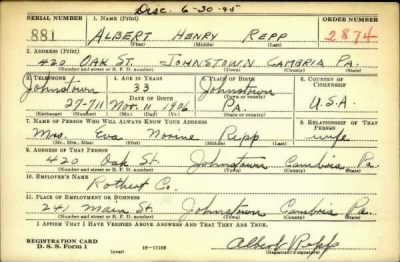 Disc. 6-30-45
SERIAL NUMBER 1. NAME (Print) ORDER NUMBER
881 ALBERT HENRY REPP 2874
(First) (Middle) (Last)
2. ADDRESS (Print)
420 OAK ST. JOHNSTOWN CAMBRIA PA.
(Number and street or R. F. D. number) (Town) (County) (State)
3. TELEPHONE 4. AGE IN YEARS 5. PLACE OF BIRTH 6. COUNTRY OF CITIZENSHIP
Johnstown 33 Johnstown
DATE OF BIRTH (Town or county)
27-711 Nov. 11 1906 Pa. U.S.A.
(Exchange) (Number) (Mo.) (Day) (Yr.) (State or country)
7. NAME OF PERSON WHO WILL ALWAYS KNOW YOUR ADDRESS 8. RELATIONSHIP OF THAT PERSON
Mrs. Eva Norine Repp wife
(Mr., Mrs., Miss) (First) (Middle) (Last)
9. ADDRESS OF THAT PERSON
420 Oak St. Johnstown Cambria Pa.
(Number and street or R. F. D. number) (Town) (County) (State)
10. EMPLOYER'S NAME
Rothert Co.
11. PLACE OF EMPLOYMENT OR BUSINESS
241 Main St. Johnstown Cambria Pa.
(Number and street or R. F. D. number) (Town) (County) (State)
I AFFIRM THAT I HAVE VERIFIED ABOVE ANSWERS AND THAT THEY ARE TRUE.
REGISTRATION CARD
D. S. S. Form 1 (over) 16—17105 Albert Repp